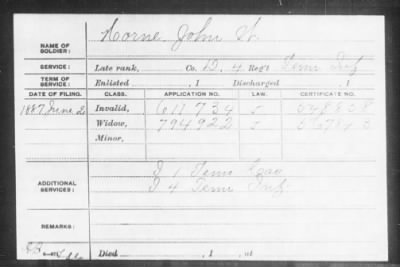 Horne John W.
NAME OF SOLDIER:
SERVICE: Late rank, Co. D, 4 Reg't Tenn Inf
TERM OF SERVICE: Enlisted , 1 Discharged , 1
DATE OF FILING. CLASS. APPLICATION NO. LAW. CERTIFICATE NO.
1887 June 2 Invalid, 611734
Widow, 794922
Minor,
ADDITIONAL SERVICES: D 1 Tenn Cav
D 4 Tenn Inf
REMARKS:
Died , 1 , at